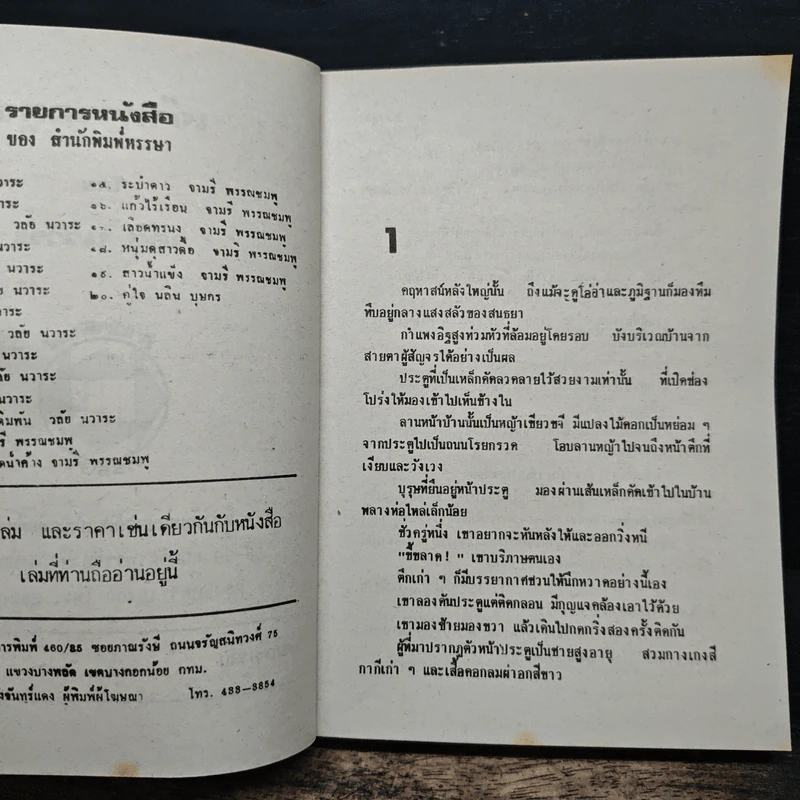 รายการหนังสือ
ของ สำนักพิมพ์หรรษา
วาระ
าระ
วลัย นวาระ
นวาระ
นวาระ
ย นวาระ
าระ
วลัย นวาระ
นวาระ
ลัย นวาระ
นวาระ
ดิมพัน วลัย นวาระ
รี พรรณชมพู
ดน้ำค้าง จามรี พรรณชมพู
๑๕. ระบำดาว จามรี พรรณชมพู
๑๖. แก้วไร้เรือน จามรี พรรณชมพู
๑๗. เลือดทรนง จามรี พรรณชมพู
๑๘. หนุ่มดุสาวดื้อ จามรี พรรณชมพู
๑๙. สาวน้ำแข็ง จามรี พรรณชมพู
๒๐. คู่ใจ นลิน บุษกร
ล่ม และราคาเช่นเดียวกันกับหนังสือ
เล่มที่ท่านถืออ่านอยู่นี้
ารพิมพ์ 460/85 ซอยภาณรังษี ถนนจรัญสนิทวงศ์ 75
แขวงบางพลัด เขตบางกอกน้อย กทม.
งจันทร์แดง ผู้พิมพ์ผู้โฆษณา โทร. 433-3854
1
คฤหาสน์หลังใหญ่นั้น ถึงแม้จะดูโอ่อ่าและภูมิฐานก็มองทึม
ทึบอยู่กลางแสงสลัวของสนธยา
กำแพงอิฐสูงท่วมหัวที่ล้อมอยู่โดยรอบ บังบริเวณบ้านจาก
สายตาผู้สัญจรได้อย่างเป็นผล
ประตูที่เป็นเหล็กดัดลวดลายไว้สวยงามเท่านั้น ที่เปิดช่อง
โปร่งให้มองเข้าไปเห็นข้างใน
ลานหน้าบ้านนั้นเป็นหญ้าเขียวขจี มีแปลงไม้ดอกเป็นหย่อม ๆ
จากประตูไปเป็นถนนโรยกรวด โอบลานหญ้าไปจนถึงหน้าตึกที่
เงียบและวังเวง
บุรุษที่ยืนอยู่หน้าประตู มองผ่านเส้นเหล็กดัดเข้าไปในบ้าน
พลางห่อไหล่เล็กน้อย
ชั่วครู่หนึ่ง เขาอยากจะหันหลังให้และออกวิ่งหนี
"ขี้ขลาด ! " เขาบริภาษตนเอง
ตึกเก่า ๆ ก็มีบรรยากาศชวนให้นึกหวาดอย่างนี้เอง
เขาลองดันประตูแต่ติดกลอน มีกุญแจคล้องเอาไว้ด้วย
เขามองซ้ายมองขวา แล้วเดินไปกดกริ่งสองครั้งติดกัน
ผู้ที่มาปรากฏตัวหน้าประตูเป็นชายสูงอายุ สวมกางเกงสี
กากีเก่า ๆ และเสื้อคอกลมผ่าอกสีขาว